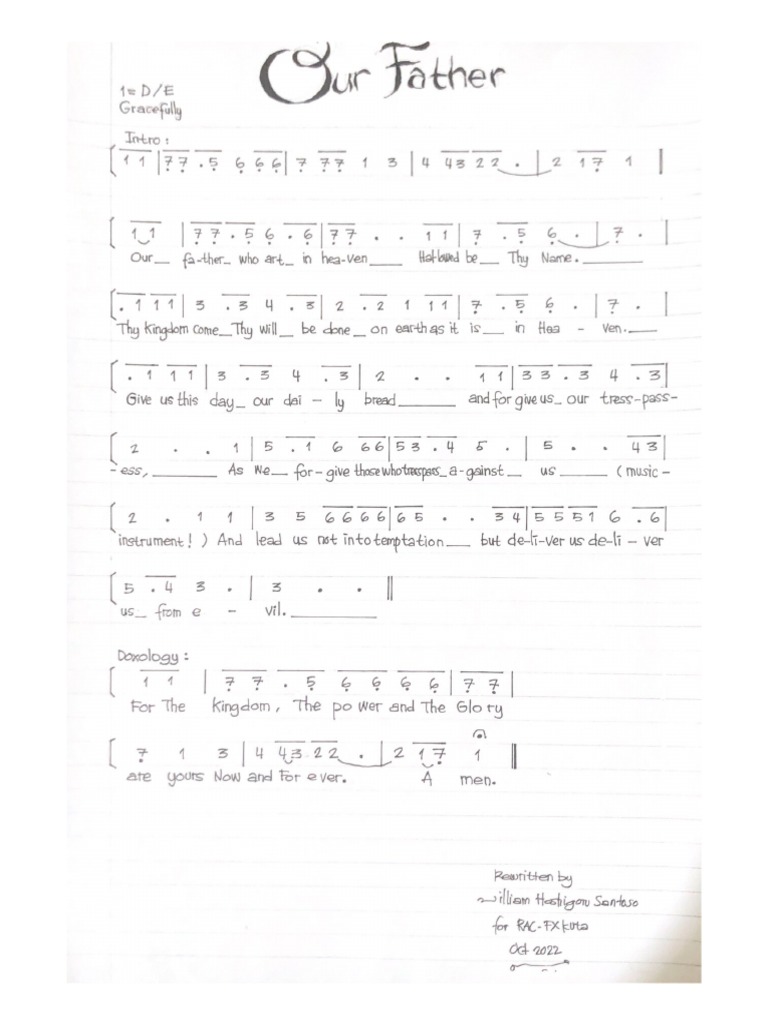 Our Father
1= D/E
Gracefully
Intro:
1 1 | 7̣ 7̣ . 5̣ 6̣ 6̣ 6̣ | 7̣ 7̣ 7̣ 1 3 | 4 4 3 2 2 . | 2 1 7̣ 1 ||
1 1 | 7̣ 7̣ . 5̣ 6̣ . 6̣ | 7̣ 7̣ . . 1 1 | 7̣ . 5̣ 6̣ . | 7̣ . |
Our_ fa-ther_ who art_ in hea-ven____ Hallowed be__ Thy Name.______
. 1 1 1 | 3 . 3 4 . 3 | 2 . 2 1 1 1 | 7̣ . 5̣ 6̣ . | 7̣ . |
Thy Kingdom come_Thy will_ be done_ on earth as it is__ in Hea - ven.___
. 1 1 1 | 3 . 3 4 . 3 | 2 . . 1 1 | 3 3 . 3 4 . 3 |
Give us this day_ our dai - ly bread______ and for give us_ our tress-pass-
2 . . 1 | 5 . 1 6 6 6 | 5 3 . 4 5 . | 5 . . 4 3 |
-ess,______ As We__ for-give those who trespass_ a-gainst__ us_____ (music-
2 . 1 1 | 3 5 6 6 6 6 | 6 5 . . 3 4 | 5 5 5 1 6 . 6 |
instrument!) And lead us not into temptation___ but de-li-ver us de-li - ver
5 . 4 3 . | 3 . . ||
us_ from e - vil.________
Doxology:
1 1 | 7̣ 7̣ . 5̣ 6̣ 6̣ 6̣ 6̣ | 7̣ 7̣ |
For The Kingdom, The power and The Glory
7̣ 1 3 | 4 4 3 2 2 . | 2 1 7̣ 1 ||
are yours Now and For ever. A men.
Rewritten by
William Santoso
for RAC-FX Kuta
Oct 2022